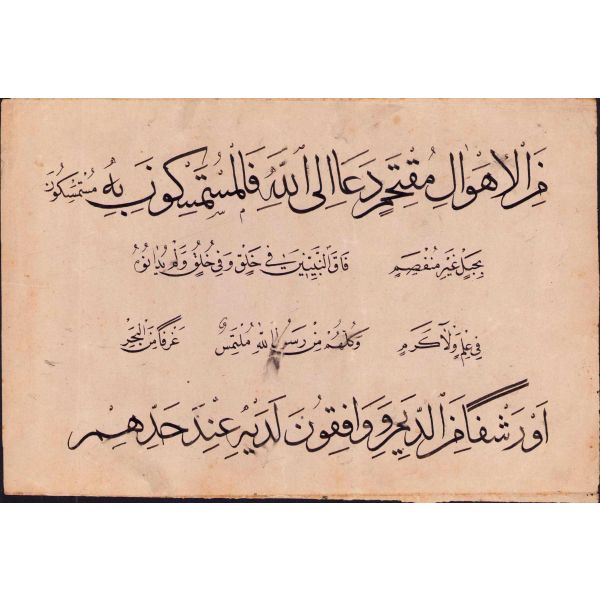 مِنَ الْاَهْوَالِ مُقْتَحِمٍ دَعَا اِلَى اللّٰهِ فَالْمُسْتَمْسِكُونَ بِهِ مُسْتَمْسِكُونَ
بِحَبْلٍ غَيْرِ مُنْفَصِمٍ فَاقَ النَّبِيِّينَ فِي خَلْقٍ وَفِي خُلُقٍ وَلَمْ يُدَانُوهُ
فِي عِلْمٍ وَلَا كَرَمٍ وَكُلُّهُمْ مِنْ رَسُولِ اللّٰهِ مُلْتَمِسٌ غَرْفًا مِنَ الْبَحْرِ
اَوْ رَشْفًا مِنَ الدِّيَمِ وَوَاقِفُونَ لَدَيْهِ عِنْدَ حَدِّهِمِ